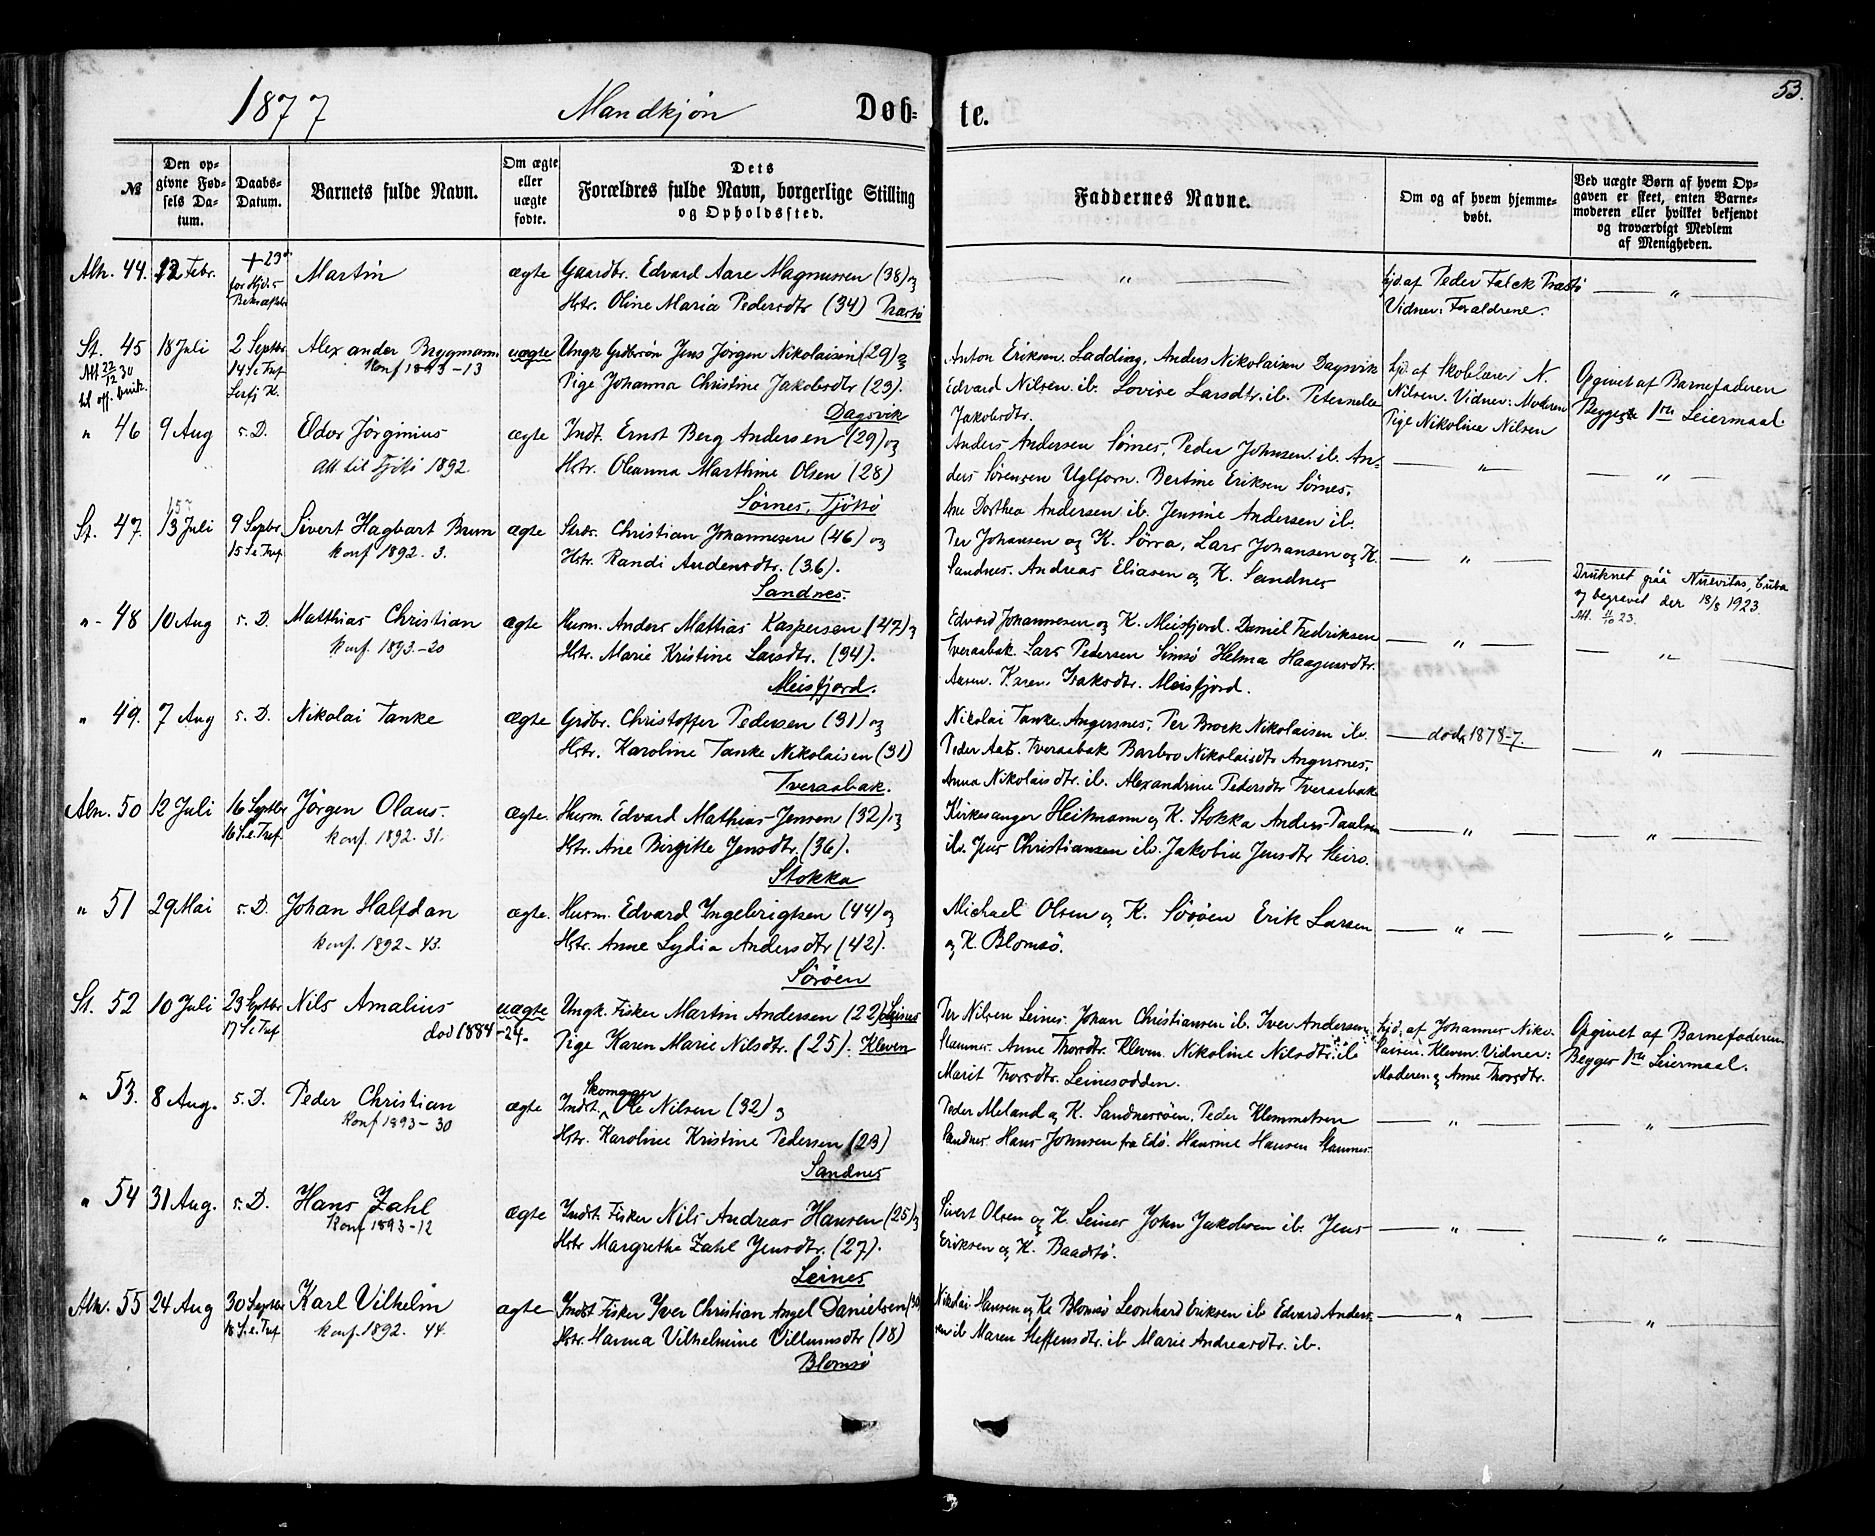 53.
1877 Mandkjøn Døb- te.
№
Den opgivne Fødsels Datum.
Daabs-Datum.
Barnets fulde Navn.
Om ægte eller uægte fødte.
Dets Forældres fulde Navn, borgerlige Stilling og Opholdssted.
Faddernes Navne.
Om og af hvem hjemmedøbt.
Ved uægte Børn af hvem Opgaven er skeet, enten Barnemoderen eller hvilket bekjendt og troværdigt Medlem af Menigheden.
Alh. 44. 12 Febr. Martin ægte Gaardbr. Edvard Aare Magnussen (38) og — „ — Hjd. af Peder Falck Træstø — „ —
Hstr. Oline Maria Pedersdtr (34) Træstø Vidner: Forældrene.
St. 45 18 Juli 2 Septbr Alexander Brygmann uægte Ungk. Grdbrsøn Jens Jörgen Nikolaisen (29) og Anton Eriksen Ladding, Anders Nikolaisen Dagsvik Hjd. af Skolelærer N. Opgivet af Barnefaderen
Att 22/12 30 14 S. e. Tref. Konf 1893-13 Pige Johanna Christine Jakobsdtr (29). Edvard Nilsen ib. Lovise Larsdtr. ib. Peternelle Nilsen. Vidner: Moderen Begges 1ste Leiermaal.
Dagsvik Jakobsdtr. Pige Nikoline Nilsen
„ 46 9 Aug s. D. Eldor Jörginius ægte Indt. Ernst Berg Andersen (29) og Anders Andersen Sörnes, Peder Johnsen ib. An- — „ — — „ —
Att til Tjötö 1892. Hstr. Oleanna Marthine Olsen (28) ders Sörensen Uglforn. Bertine Eriksen Sörnes,
Sörnes, Tjöttö Ane Dorthea Andersen ib. Jensine Andersen ib.
St. 47. 13 Juli 9 Septbr Sivert Hagbart Brun ægte Christian Johannesen (46) og Per Johansen og K. Sörra, Lars Johansen og K. — „ —
15 S. e. Tref. Konf 1892. 3. Hstr. Randi Andersdtr. (36). Sandnes. Andreas Eliasen og K. Sandnes
Sandnes. Druknet paa Nuevitas, Cuba
og begravet der 18/8 1923.
„ 48 10 Aug s. D. Matthias Christian ægte Husm. Anders Mattias Kaspersen (47) og Edvard Johannesen og K. Meisfjord. Daniel Fredriksen — „ — Att. 4/10 23.
Konf. 1893.-20 Hstr. Marie Kristine Larsdtr. (34). Tveraabak. Lars Pedersen Simsö Helma Haagensdtr. — „ —
Meisfjord. Aasen. Karen Isaksdtr. Meisfjord.
„ 49. 7 Aug s. D. Nikolai Tanke ægte Grdbr. Christoffer Pedersen (31) og Nikolai Tanke Angersnes, Per Brock Nikolaisen ib. — död 1878-7. — „ —
Hstr. Karoline Tanke Nikolaisen (31) Peder Aas. Tveraabak Barbro Nikolaisdtr Angersnes,
Tveraabak. Anna Nikolaisdtr. ib. Alexandrine Pedersdtr Tveraabak
Alh. 50 12 Juli 16 Septbr Jörgen Olaus. ægte. Husm. Edvard Mathias Jensen (32) og Kirkesanger Heitmann og K. Stokka Anders Paulsen — „ — — „ —
16 S. e. Tref. Konf. 1892. 31. Hstr. Ane Birgitte Jensdtr. (36). ib. Jens Christiansen ib. Jakobine Jensdtr Steiro.
Stokka
„ 51 29 Mai s. D. Johan Halfdan ægte. Husm. Edvard Ingebrigtsen (44) og Michael Olsen og K. Söröen Erik Larsen — „ — — „ —
Konf. 1892-43. Hstr. Anne Lydia Andersdtr (42). og K. Blomsö.
Söröen
St. 52 10 Juli 23 Septbr Nils Amalius uægte Ungk. Fisker Martin Andersen (22) Leines Per Nilsen Leines. Johan Christiansen ib. Iver Andersen Hjd. af Johannes Niko- Opgivet af Barnefaderen
17 S. e. Tref. död 1884-24. Pige Karen Marie Nilsdtr. (25). Kleven Stamnes. Anne Thorsdtr. Kleven. Nikoline Nilsdtr. ib laisen. Kleven. Vidner: Begges 1ste Leiermaal.
Marit Thorsdtr. Leinesodden. Moderen og Anne Thorsdtr.
„ 53. 8 Aug. s. D. Peder Christian ægte Indst. Skomager Ole Nilsen (32) og Peder Meland og K. Sandnessöen. Peder Klemmetsen — „ — — „ —
Konf 1893-30 Hstr. Karoline Kristine Pedersen (23) Sandnes. Hans Johnsen fra Edö. Hansine Hansen Stamnes.
Sandnes
„ 54 31 Aug. s. D. Hans Zahl ægte Indst. Fisker Nils Andreas Hansen (25) og Sivert Olsen og K. Leines John Jakobsen ib. Jens — „ — — „ —
Konf 1893-12 Hstr Margrethe Zahl Jensdtr. (27). Eriksen og K. Baadstö.
Leines
Alh. 55 24 Aug 30 Septbr Karl Vilhelm ægte Indst Fisker Iver Christian Angel Danielsen Nikolai Hansen og K. Blomsö Leonhard Eriksen ib Edvard Anders- — „ — — „ —
18 S. e. Tref. Konf. 1892. 44. Hstr. Hanna Vilhelmine Villumsdtr (18) sen ib Maren Steffensdtr. ib Marie Andreasdtr. ib.
Blomsö